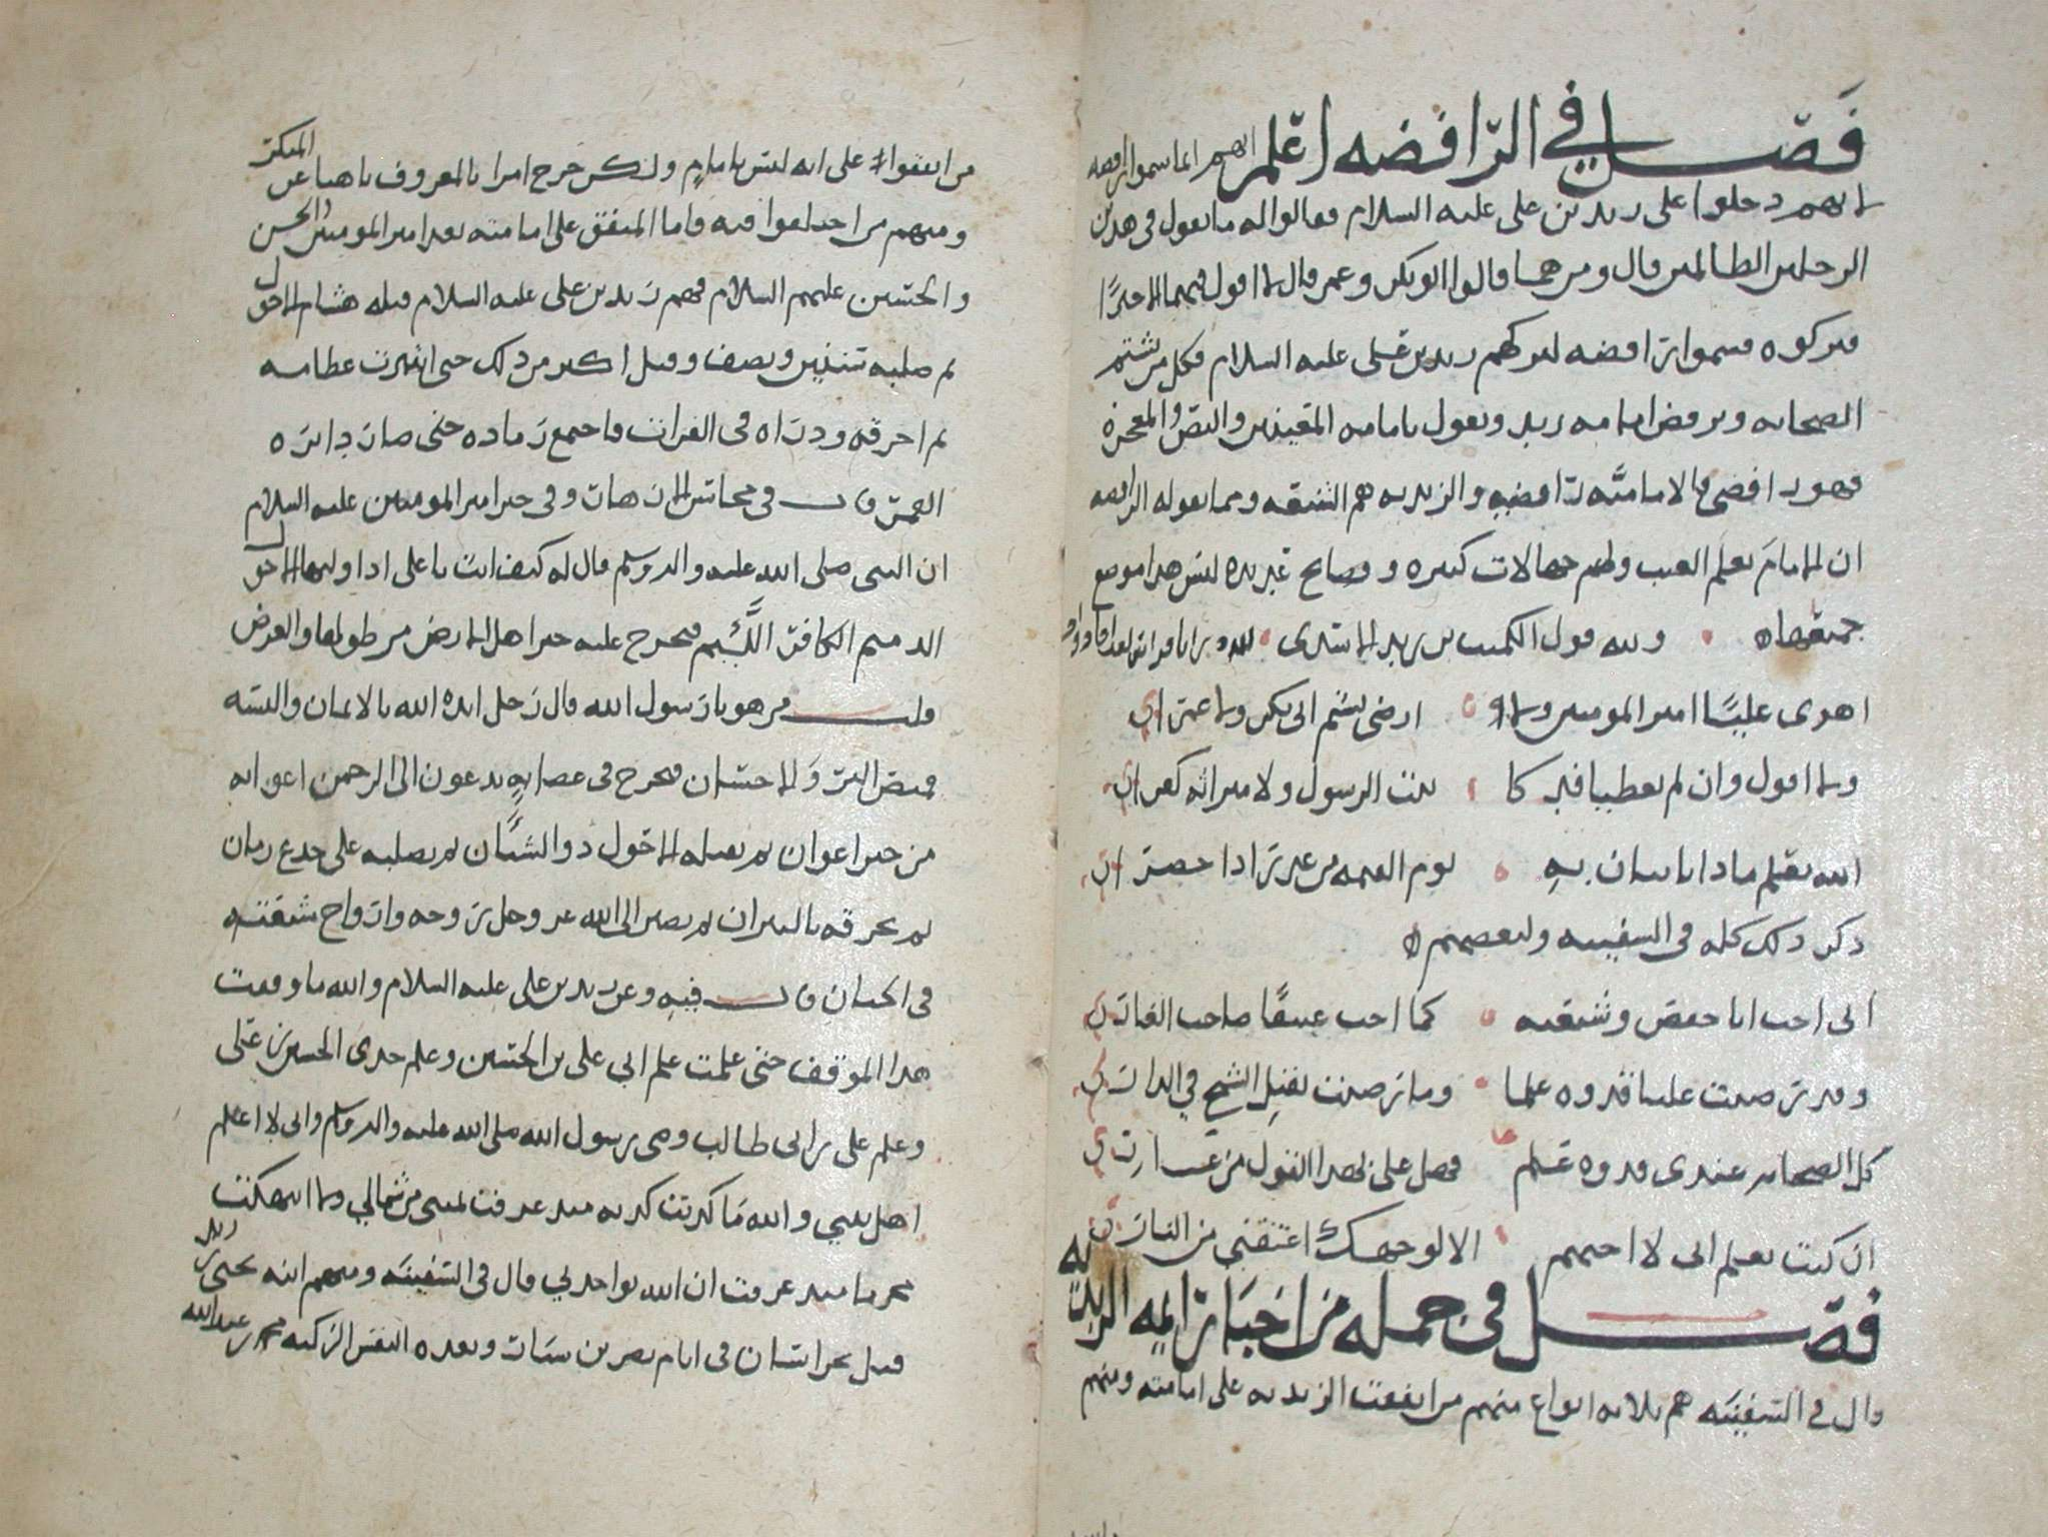 فصل في الرافضه اعلم انهم انما سموا رافضه
لانهم دخلوا على زيد بن على عليه السلام فقالوا له ما تقول في هذين
الرجلين الظالمين قال ومن هما قالوا ابو بكر وعمر قال لا اقول فيهما الا خيرًا
فتركوه فسموا رافضه لتركهم زيد بن على عليه السلام فكل من يشتم
الصحابه ويرفض امامه زيد ويقول بامامه المعينين والنص والمعجزه
فهو رافضي فالاماميّه رافضيه والزيديه هم الشيعه ومما يقوله الرافضه
ان الامام يعلم الغيب ولهم جهالات كثيره وفضايح غزيره ليس هذا موضع
جميعها ولله قول الكميت بن زيد الاسدي
اهوى عليًا امير المومنين ولا ارضى بشتم ابي بكر ولا عمرا
ولا اقول وان لم يعطيا فدكا بنت الرسول ولا ميراثه كفرا
الله يعلم ماذا ياتيان به يوم القيمه من عذر اذا حضرا
ذكر ذلك كله في السفينه ولبعضهم
اني احب ابا حفص وشيعته كما احب عتيقًا صاحب الغار
وقد رضيت عليا قدوه علما وما رضيت بقتل الشيخ في الدار
كل الصحابه عندي قدوه علم فهل على بهذا القول من عار
ان كنت تعلم اني لا احبهم الا لوجهك اعتقني من النار
فصل في جمله من اخبار ايمه الزيديه
قال في السفينه هم ثلاثه انواع منهم من اتفقت الزيديه على امامته ومنهم
من اتفقوا على انه ليس بامام ولكن خرج امرا بالمعروف ناهيا عن المنكر
ومنهم من اختلفوا فيه فاما المتفق على امامته بعد امير المومنين والحسن
والحسين عليهم السلام فهم زيد بن على عليه السلام قتله هشام الاحول
ثم صلبه سنتين ونصف وقيل اكثر من ذلك حتى انتثرت عظامه
ثم احرقه وذراه في الفرات فاجتمع رماده حتى صار دايره
القمر قال في محاسن الازهار وفي خبر امير المومنين عليه السلام
ان النبي صلى الله عليه واله وسلم قال له كيف انت يا على اذا وليها الاحول
الذميم الكافر اللئيم فيخرج عليه خير اهل الارض من طولها والعرض
قلت من هو يا رسول الله قال رجل ايده الله بالايمان والبسه
قميص البر والاحسان فيخرج في عصابهٍ يدعون الى الرحمن اعوانه
من خير اعوان ثم يقتله الاحول ذو الشنان ثم يصلبه على جذع رمان
ثم يحرقه بالنيران ثم يصير الى الله عز وجل روحه وارواح شيعته
في الجنان قال فيه وعن زيد بن على عليه السلام والله ما وقفت
هذا الموقف حتى علمت علم ابي على بن الحسين وعلم جدي الحسين بن على
وعلم على بن ابي طالب وصي رسول الله صلى الله عليه واله وسلم واني لا اعلم
اهل بيتي والله ما كذبت كذبه منذ عرفت يميني من شمالي ولا انتهكت
محرما منذ عرفت ان الله يواخذني قال في السفينه ومنهم ابنه يحيى بن زيد
قتل بخراسان في ايام نصر بن سيار وبعده النفس الزكيه محمد بن عبدالله